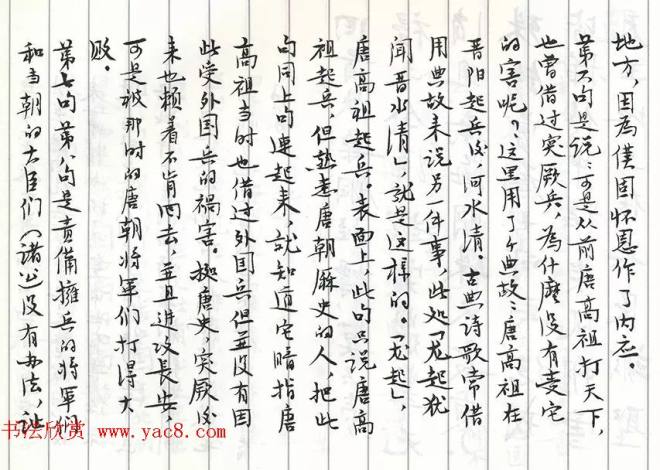 地方，因为仆固怀恩作了内应。
第六句是说：可是从前唐高祖打天下，
也曾借过突厥兵，为什麽没有受它
的害呢？这里用了个典故：唐高祖在
晋阳起兵后，河水清。古典诗歌常借
用典故来说另一件事，此处「龙起犹
闻晋水清」，就是这样的。「龙起」，
唐高祖起兵。表面上，此句只说唐高
祖起兵，但熟悉唐朝厤史的人，把此
句同上句连起来，就知道它暗指唐
高祖当时也借过外国兵但并没有因
此受外国兵的祸害。据唐史，突厥后
来也赖着不肯回去，并且进攻长安，
可是被那时的唐朝将军们打得大
败。
第七句第八句是责备拥兵的将军们
和当朝的大臣们（诸公）没有办法，让
书法欣赏 www.yac8.com